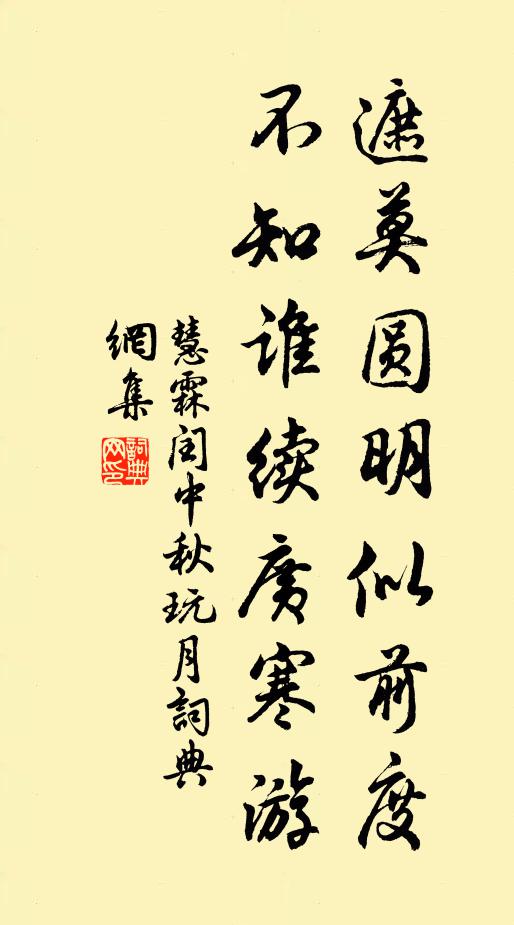 遮莫圆明似前度
不知谁续廣寒游
慧霖闰中秋玩月詞典
網集
詞典
网印